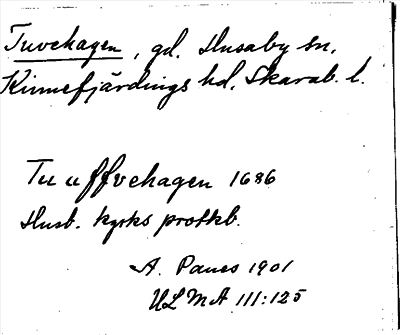 Tuvehagen, gd. Husaby sn,
Kinnefjärdings hd. Skarab. l.
Tuuffvehagen 1686
Husb. kyrks protkb.
A. Panes 1901
ULMA 111:125